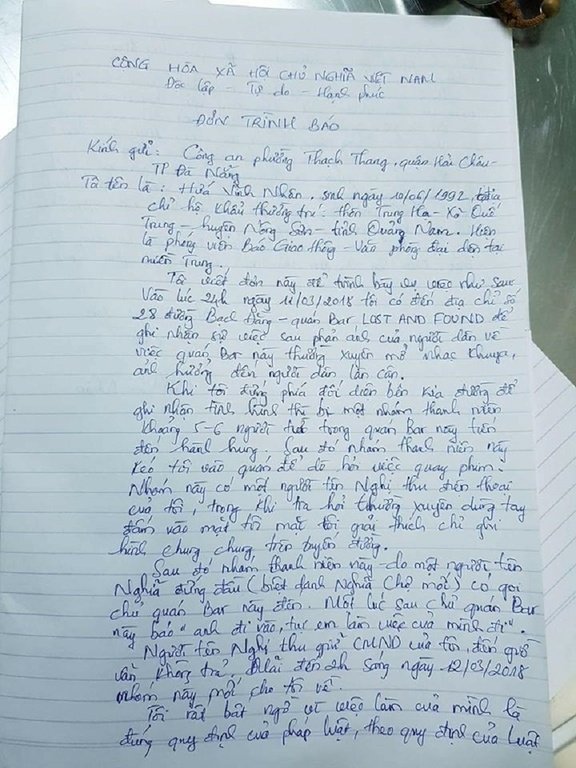 CÔNG HÒA XÃ HỘI CHỦ NGHĨA VIỆT NAM
Độc lập - Tự do - Hạnh phúc
ĐƠN TRÌNH BÁO
Kính gửi: Công an phường Thạch Thang, quận Hải Châu-
TP Đà Nẵng
Tôi tên là: Hứa Vĩnh Nhân, sinh ngày 10/06/1992, địa
chỉ hộ khẩu thường trú: thôn Trung Hạ - Xã Quế
Trung - huyện Nông Sơn - tỉnh Quảng Nam. Hiện
là phóng viên Báo Giao thông - Văn phòng đại diện tại
miền Trung.
Tôi viết đơn này để trình bày sự việc như sau:
Vào lúc 24h ngày 11/03/2018 tôi có đến địa chỉ số
28 đường Bạch Đằng - quán Bar LOST AND FOUND để
ghi nhận sự việc sau phản ánh của người dân về
việc quán Bar này thường xuyên mở nhạc khuya,
ảnh hưởng đến người dân lân cận.
Khi tôi đứng phía đối diện bên kia đường để
ghi nhận tình hình thì bị một nhóm thanh niên
khoảng 5-6 người từ trong quán Bar này tiến
đến hành hung. Sau đó nhóm thanh niên này
kéo tôi vào quán để dò hỏi việc quay phim.
Nhóm này có một người tên Nghị thu điện thoại
của tôi, trong khi tra hỏi thường xuyên dùng tay
đấm vào mặt tôi mặc tôi giải thích chỉ ghi
hình chung chung, trên tuyến đường.
Sau đó nhóm thanh niên này - do một người tên
Nghĩa đứng đầu (biệt danh Nghĩa (Chợ mới) có gọi
chủ quán Bar này đến. Một lúc sau chủ quán Bar
này bảo "anh đi vào, tụi em làm việc của mình đi".
Người tên Nghị thu giữ CMND của tôi, đến giờ
vẫn không trả. Phải đến 2h sáng ngày 12/03/2018
nhóm này mới cho tôi về.
Tôi rất bất ngờ vì việc làm của mình là
đúng quy định của pháp luật, theo quy định của Luật